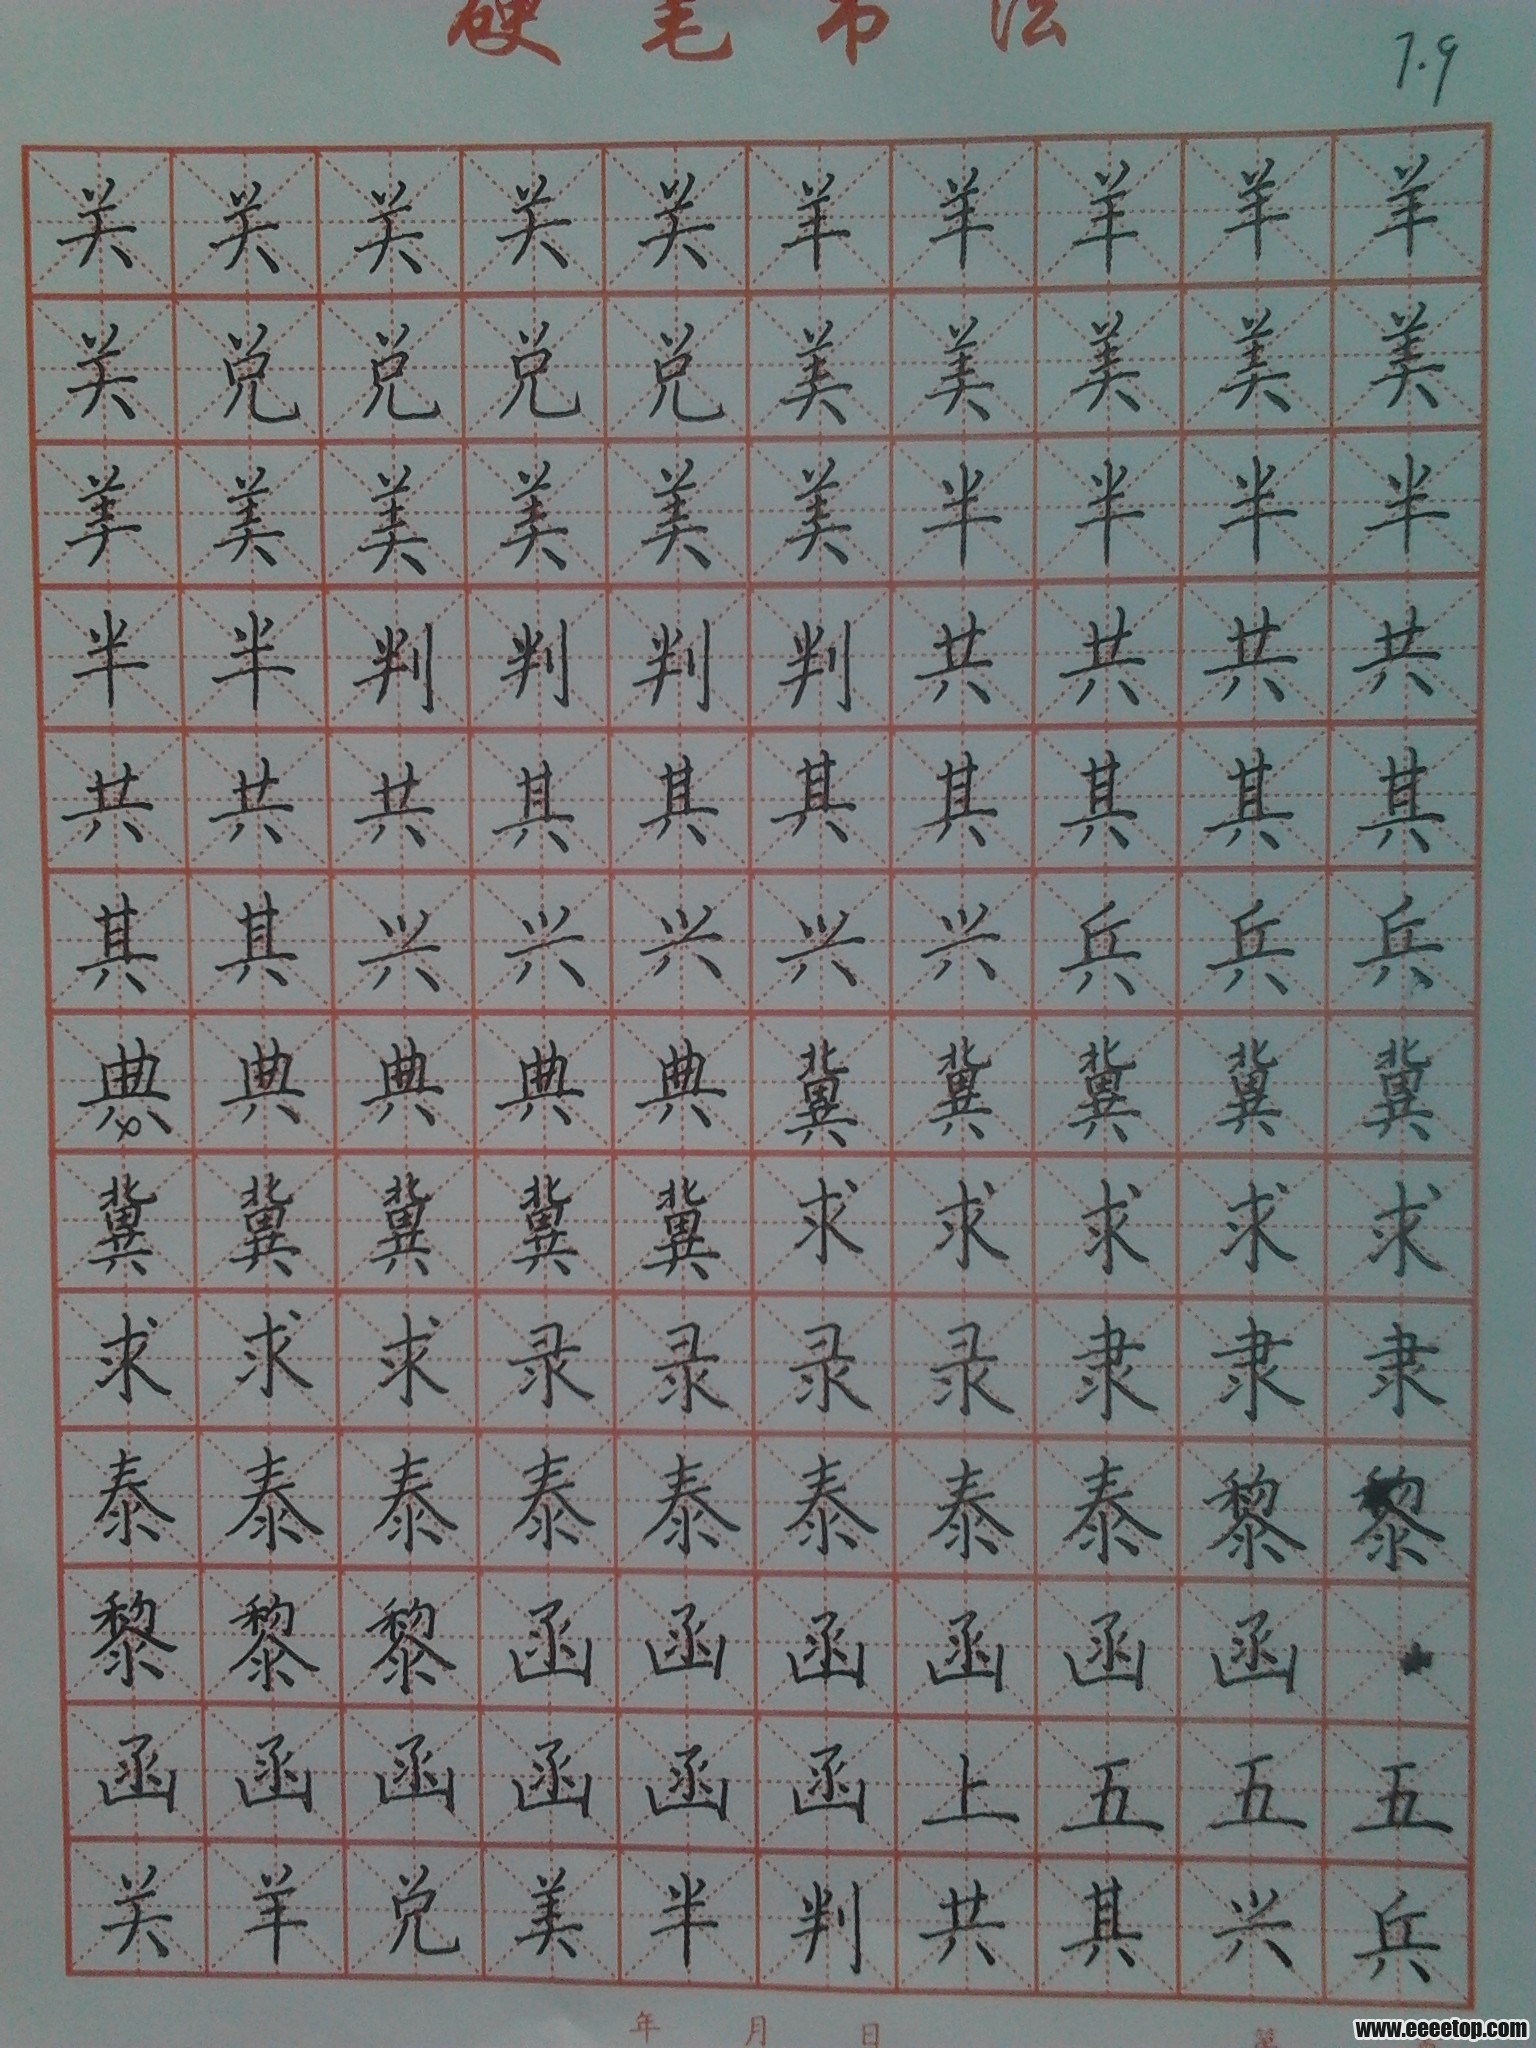 硬笔书法
7.9
关关关关关羊羊羊羊羊
关兑兑兑兑美美美美美
美美美美美美半半半半
半半判判判判共共共共
共共共其其其其其其其
其其兴兴兴兴兴兵兵兵
典典典典典冀冀冀冀冀
冀冀冀冀冀求求求求求
求求求录录录录隶隶隶
泰泰泰泰泰泰泰泰黎黎
黎黎黎函函函函函函
函函函函函函上五五五
关羊兑美半判共其兴兵
年 月 日 第
www.eeeetop.com